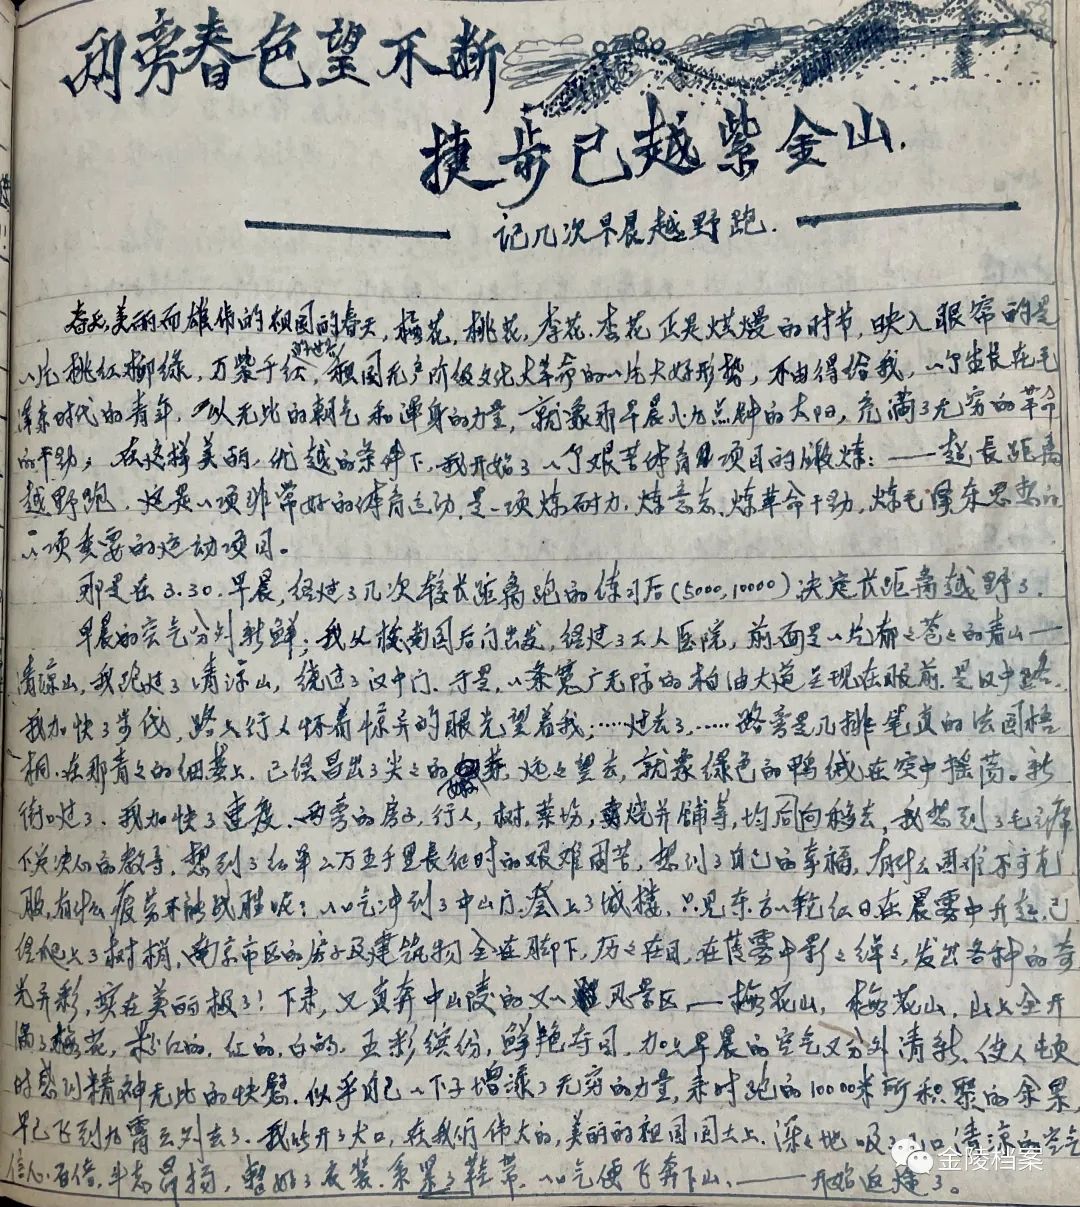 两旁春色望不断
捷步已越紫金山.
—— 记几次早晨越野跑. ——
春天,美丽而雄伟的祖国的春天,梅花,桃花,李花,杏花正是烘熳的时节,映入眼帘的是
一片桃红柳绿,万紫千红,祖国无产阶级文化大革命的一片大好形势,不由得给我,一个生长在毛
泽东时代的青年,以无比的朝气和浑身的力量,就象那早晨八九点钟的太阳,充满了无穷的革命
的干劲,在这样美丽,优越的条件下,我开始了一个艰苦体育项目的锻炼:——超長距离
越野跑.这是一项非常好的体育运动.是一项炼耐力.炼意志.炼革命干劲,炼毛泽东思想的
一项重要的运动项目。
那是在3.30.早晨,经过了几次较长距离跑的练习后(5000,10000)决定长距离越野了.
早晨的空气分外新鲜;我从校南园后门出发,经过了工人医院,前面是一片郁〻苍〻的青山——
清凉山,我跑过了清凉山,绕过了汉中门.于是,一条宽广无际的柏油大道呈现在眼前.是汉中路.
我加快了步伐,路上行人怀着惊异的眼光望着我,……过去了,……路旁是几排笔直的法国梧
桐.在那青〻的细萎上.已经冒出了尖〻的嫩芽,远〻望去,就象绿色的鸭绒在空中摇荡。新
街口过了.我加快了速度.两旁的房子,行人,树,菜场,烧并铺等,均同向移去,我想到了毛主席
下定决心的教导,想到了红军二万五千里長征时的艰难困苦,想到了自己的幸福,有什么困难不可克
服,有什么疲劳不能战胜呢?一口气冲到了中山门.登上了城楼.只见东方一轮红日在晨雾中升起,已
经爬上了树梢,南京市区的房子及建筑物全在脚下,历〻在目,在晨雾中影〻绰〻,发出各种的奇
光异彩,实在美丽极了!下来,又直奔中山陵的又一风景区,——梅花山,梅花山,山上全开
满了梅花,粉红的,红的,白的,五彩缤纷,鲜艳夺目,加上早晨的空气又分外清新,使人顿
时感到精神无比的快慰.似乎自己一下子增添了无穷的力量,来时跑的10000米所积聚的余累,
早已飞到九霄云外去了.我张开了大口,在我们伟大的,美丽的祖国国土上.深〻地吸了口清凉的空气
信心百倍.斗志昂扬,整好了衣装.系紧了鞋带.一口气便飞奔下山,——开始返途了。
金陵档案